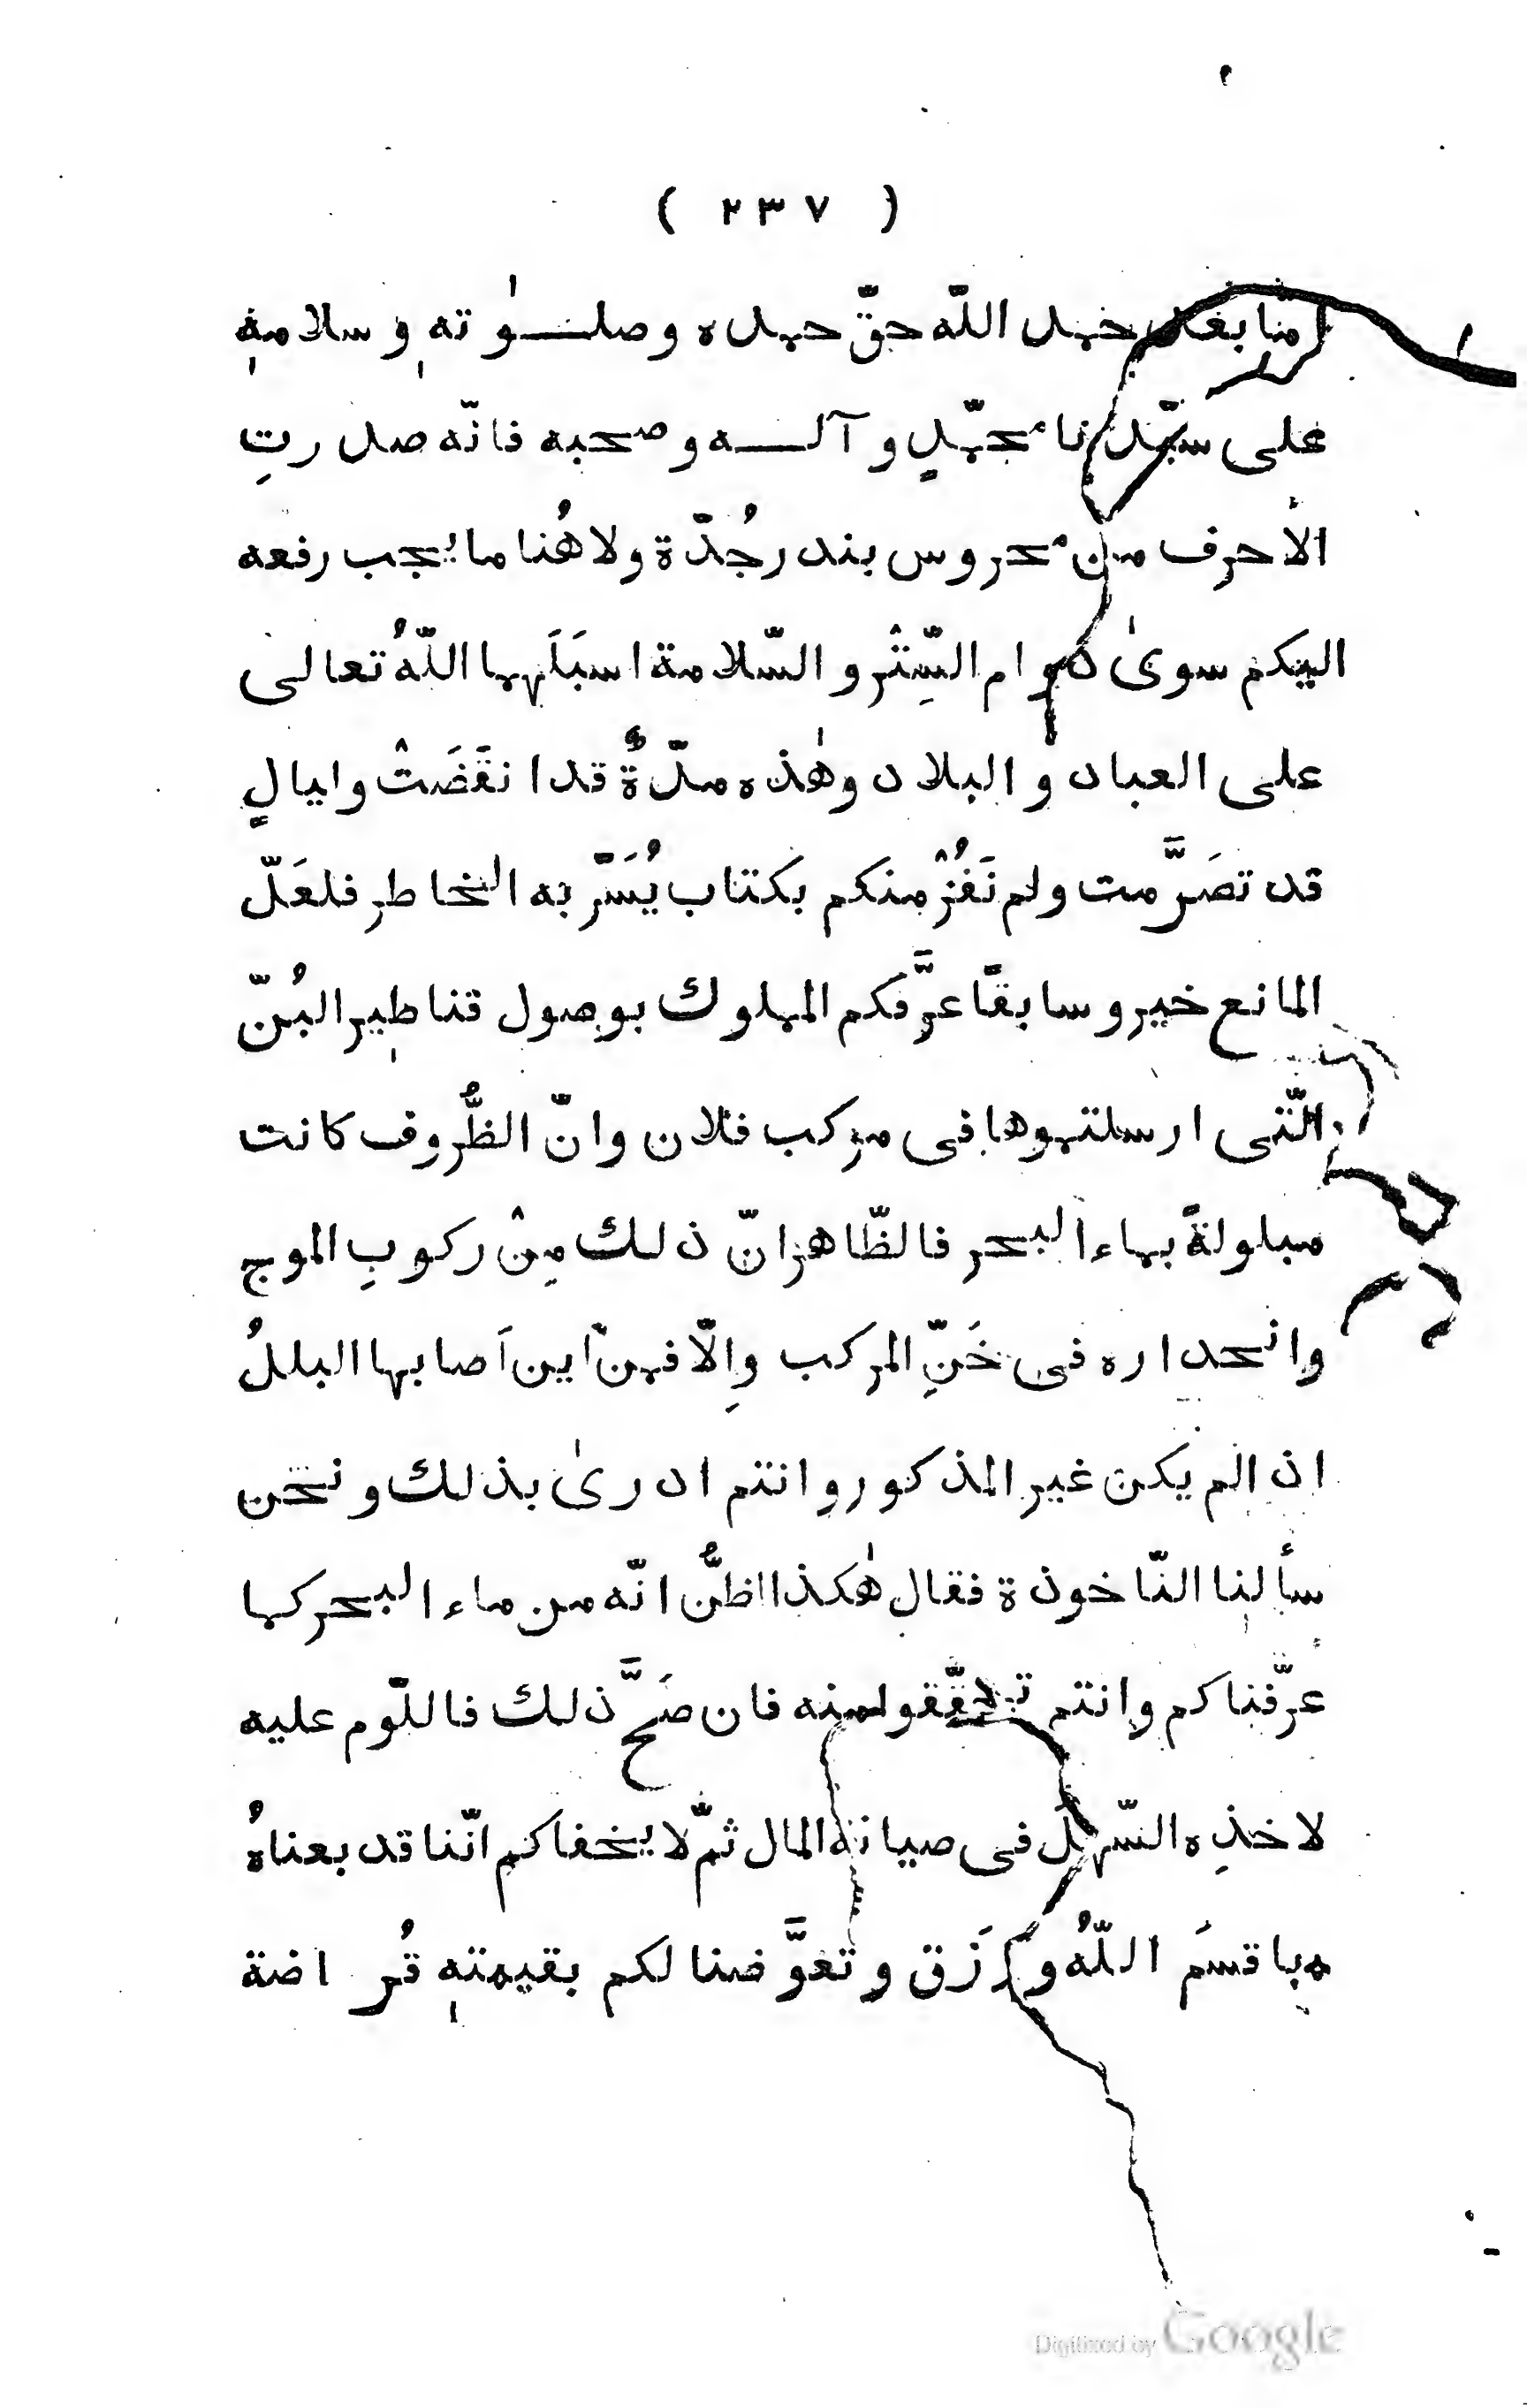 ( ٢٣٧ )
امّا بعد حمد اللّه حقّ حمده وصلوٰته وسلامه
على سيّدنا محمّدٍ وآلــه وصحبه فانّه صدرتِ
الأحرف من محروس بندر جُدّة ولا هُنا ما يجب رفعه
اليكم سوىٰ دوام السِّتْر والسّلامة اسبَلَهما اللّهُ تعالى
على العباد والبلاد وهٰذه مدّةٌ قد انقَضَتْ وليالٍ
قد تصَرَّمت ولم نَفُزْ منكم بكتاب يُسَرّ به الخاطر فلعَلّ
المانع خير وسابقًا عرَّفكم المملوك بوصول قناطير البُنّ
الّتى ارسلتموها فى مركب فلان وانّ الظُّروف كانت
مبلولةً بماء البحر فالظّاهر انّ ذلك مِنْ ركوبِ الموج
وانحداره فى خَنِّ المركب والّا فمن اَين اَصابها البللُ
ان لم يكن غير المذكور وانتم ادرىٰ بذلك ونحن
سألنا النّاخوذة فقال هٰكذا اظنُّ انّه من ماء البحر كما
عرّفناكم وانتم تحقّقوا منه فان صَحَّ ذلك فاللّوم عليه
لاخذِه السّهل فى صيانة المال ثمّ لا يخفاكم انّنا قد بعناهُ
بما قسَمَ اللّهُ ورَزَق وتعوَّضنا لكم بقيمته قُراضة
Digitized by Google